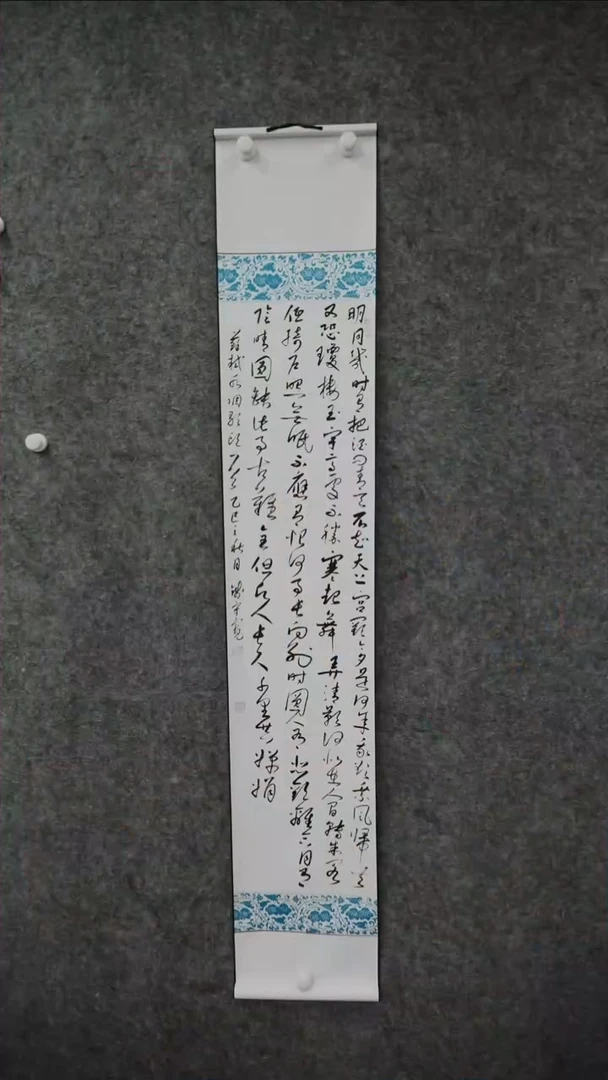 明月幾时有把酒问青天不知天上宫闕今夕是何年我欲乘风归去
又恐瓊楼玉宇高处不勝寒起舞弄清影何似在人间转朱阁
低绮户照无眠不應有恨何事长向别时圆人有悲欢離合月有
陰晴圆缺此事古難全但願人长久千里共嬋娟
蘇軾水调歌头 乙巳之秋月